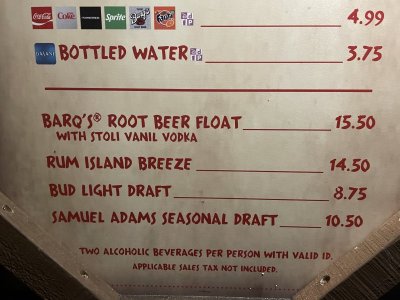 Coca-Cola Coke Sprite Barq's Fanta 4.99
DASANI BOTTLED WATER DDP 3.75
BARQ'S® ROOT BEER FLOAT 15.50
WITH STOLI VANIL VODKA
RUM ISLAND BREEZE 14.50
BUD LIGHT DRAFT 8.75
SAMUEL ADAMS SEASONAL DRAFT 10.50
TWO ALCOHOLIC BEVERAGES PER PERSON WITH VALID ID.
APPLICABLE SALES TAX NOT INCLUDED.